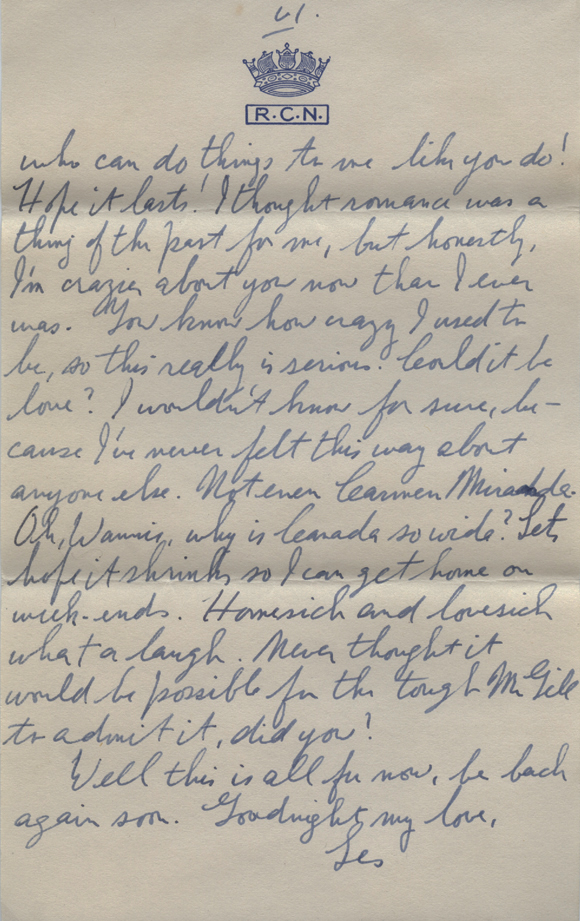 VI.
R.C.N.
who can do things to me like you do!
Hope it lasts! I thought romance was a
thing of the past for me, but honestly,
I'm crazier about you now than I ever
was. You know how crazy I used to
be, so this really is serious. Could it be
love? I wouldn't know for sure, be-
cause I've never felt this way about
anyone else. Not even Carmen Miranda.
Oh, Wannie, why is Canada so wide? Lets
hope it shrinks so I can get home on
week-ends. Homesick and lovesick
what a laugh. Never thought it
would be possible for the tough McGill
to admit it, did you?
Well this is all for now, be back
again soon. Goodnight my love,
Les